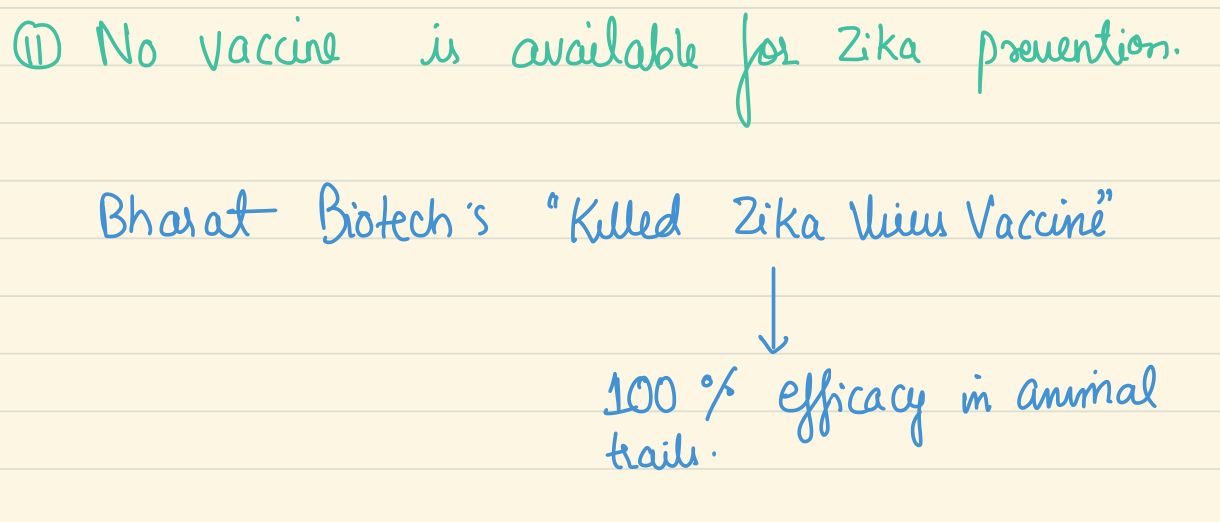 ⑪ No vaccine is available for Zika prevention.
Bharat Biotech's "Killed Zika Virus Vaccine"
↓
100 % efficacy in animal
trails.